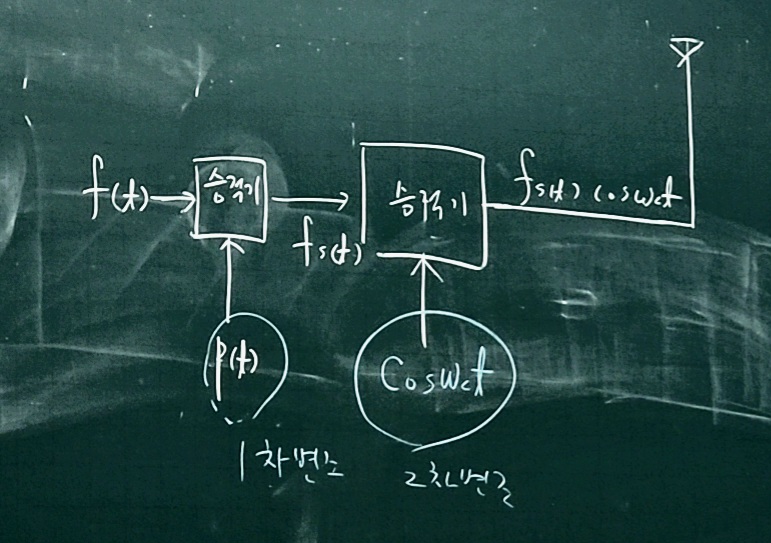 f(t)
승적기
fs(t)
승적기
fs(t) cosWct
P(t)
CosWct
1차변조
2차변조